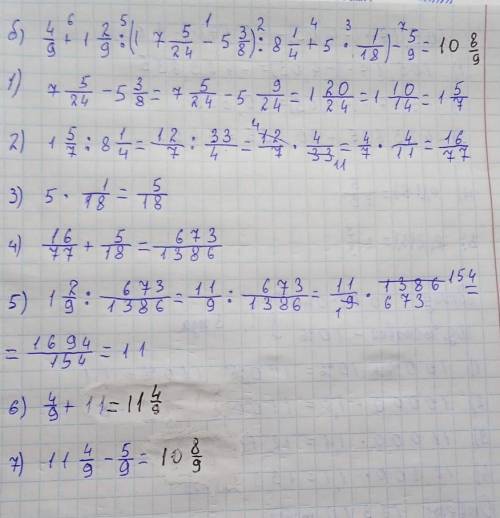 б) 4/9 + 1 2/9 : (1 7 5/24 - 5 3/8) : 8 1/4 + 5 · 1/18) - 5/9 = 10 8/9
1) 7 5/24 - 5 3/8 = 7 5/24 - 5 9/24 = 1 20/24 = 1 10/14 = 1 5/7
2) 1 5/7 : 8 1/4 = 12/7 : 33/4 = 12/7 · 4/33 = 4/7 · 4/11 = 16/77
3) 5 · 1/18 = 5/18
4) 16/77 + 5/18 = 673/1386
5) 1 2/9 : 673/1386 = 11/9 : 673/1386 = 11/9 · 1386/673 =
= 1694/154 = 11
6) 4/9 + 11 = 11 4/9
7) 11 4/9 - 5/9 = 10 8/9